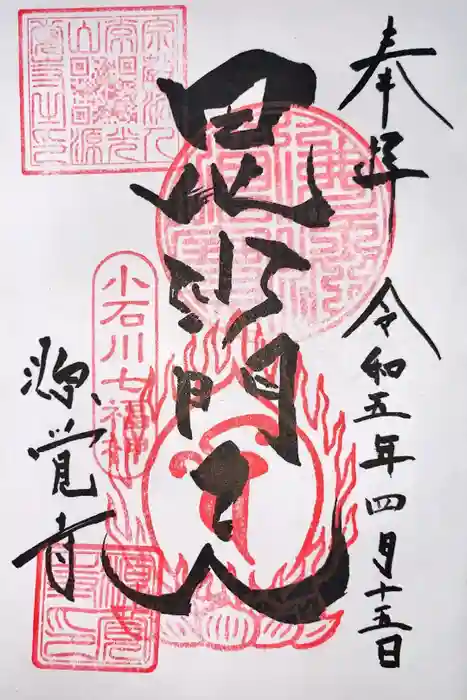 奉拝
令和五年四月十五日
毘沙門天
小石川七福神
源覚寺